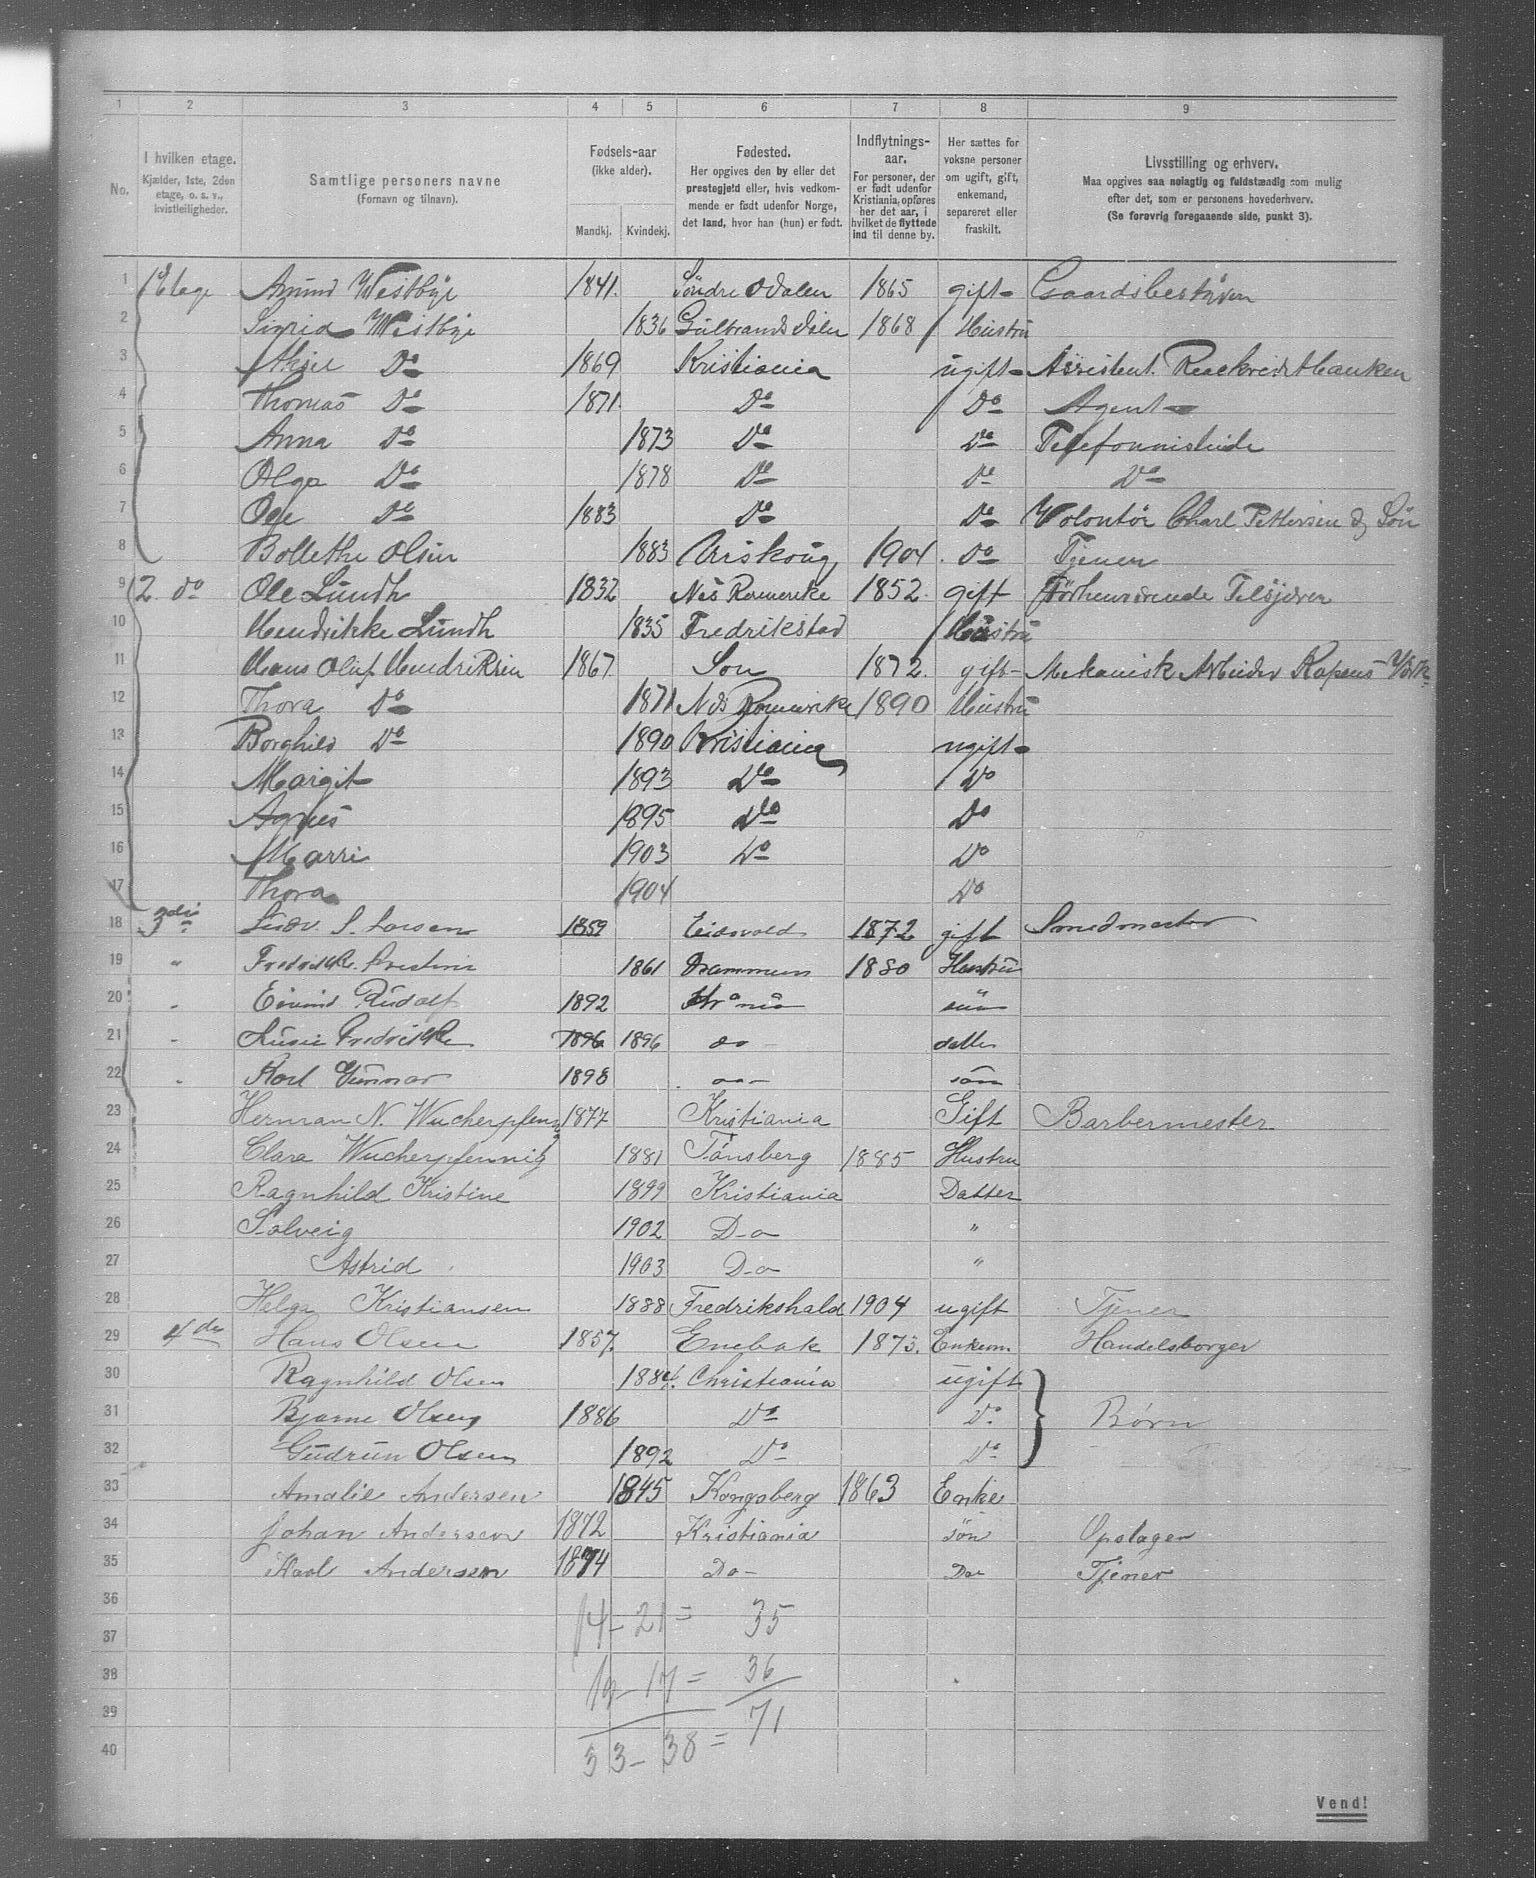 1 2 3 4 5 6 7 8 9
No. I hvilken etage. Kjælder, 1ste, 2den etage, o. s. v., kvistleiligheder. Samtlige personers navne (Fornavn og tilnavn). Fødsels-aar (ikke alder). Mandkj. Kvindekj. Fødested. Her opgives den by eller det prestegjeld eller, hvis vedkommende er født udenfor Norge, det land, hvor han (hun) er født. Indflytnings-aar. For personer, der er født udenfor Kristiania, opføres her det aar, i hvilket de flyttede ind til denne by. Her sættes for voksne personer om ugift, gift, enkemand, separeret eller fraskilt. Livsstilling og erhverv. Maa opgives saa nøiagtig og fuldstændig som mulig efter det, som er personens hovederhverv. (Se forøvrig foregaaende side, punkt 3).
1 1 Etage Amund Westbye 1841. Söndre Odalen 1865 gift Gaardsbestyrer
2 Sigrid Westbye 1836 Gulbrandsdalen 1868 Hustru
3 Aksel Do 1869 Kristiania ugift Assistent. Realkreditbanken
4 Thomas Do 1871. Do Do Agent
5 Anna Do 1873 Do Do Telefonistinde
6 Olga Do 1878 Do Do Do
7 Ole Do 1883 Do Do Volontør Charl. Pettersen & Sön
8 Bollethe Olsen 1883 Urskoug 1904 Do Tjener
9 2 do Ole Lundh 1832 Nes Romerike 1852. gift Forhenværende Tilsjøren
10 Hendrikke Lundh 1835 Fredrikstad Hustru
11 Hans Oluf Hendriksen 1867. Son 1872. gift Mekanisk Arbeider Kapens Værk
12 Thora Do 1871 Nes Romerike 1890 Hustru
13 Borghild Do 1890 Kristiania ugift
14 Margit 1893 Do Do
15 Agnes 1895 Do Do
16 Marri 1903 Do Do
17 Thora 1904 Do
18 3die Ludv. S. Larsen 1859 Eidsvold 1872 gift Smedmester
19 " Fredrikke Kristine 1861 Drammen 1880 Hustru
20 " Eivind Rudolf 1892 Kr ania sön
21 " Fredrikke 1896 1896 do datter
22 " Karl Gunnar 1898 do sön
23 Herman N. Wucherpfennig 1877 Kristiania Gift Barbermester
24 Clara Wucherpfennig 1881 Tönsberg 1885 Hustru
25 Ragnhild Kristine 1899 Kristiania Datter
26 Solveig 1902 D-o "
27 Astrid 1903 D-o "
28 Helga Kristiansen 1888 Fredrikshald 1904 ugift Tjener
29 4de Hans Olsen 1857. Enebak 1875. Enkem. Handelsborger
30 Ragnhild Olsen 1884. Christiania ugift
31 Bjarne Olsen 1886 Do Do Børn
32 Gudrun Olsen 1892 Do Do
33 Amalie Andersen 1845 Kongsberg 1863 Enke
34 Johan Andersen 1872 Kristiania søn Opslager
35 Karl Andersen 1874 Do Do Tjener
36 14 - 21 = 35
37
38 19 - 17 = 36
39 71
40 33 - 38 =
Vend!